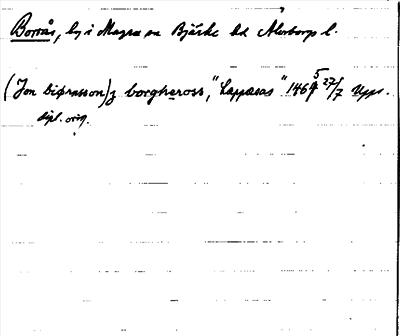 Borrås, by i Magra sn Bjärke hd Älvsborgs l.
(Jon biørnsson) j borghaross, "Lappasas" 1465 27/7 Upps.
dipl. orig.